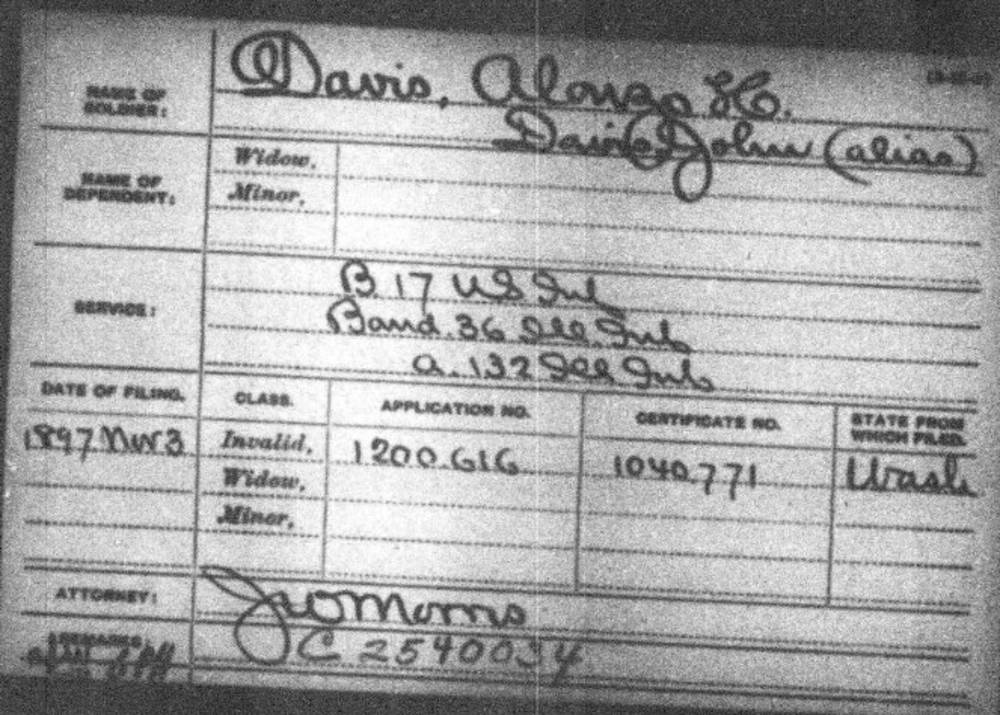 NAME OF SOLDIER: Davis, Alonzo H.
Davis, John (alias)
NAME OF DEPENDENT: Widow,
Minor,
SERVICE: B 17 US Inf
Band 36 Ill Inf
A. 132 Ill Inf
DATE OF FILING. CLASS. APPLICATION NO. CERTIFICATE NO. STATE FROM WHICH FILED.
1897 Nov 3 Invalid, 1200.616 1040.771 Wash
Widow,
Minor,
ATTORNEY: Jno Morris
REMARKS: C 2540034